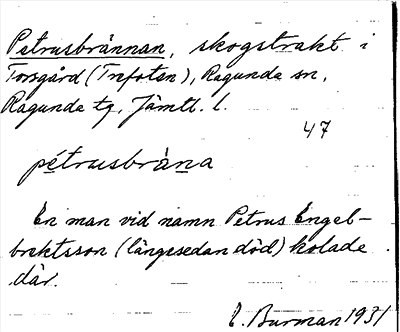 Petrusbrännan, skogstrakt i
Torsgård (Trefoten), Ragunda sn,
Ragunda tg, Jämtl. l.
47
pétrusbràna
En man vid namn Petrus Engel-
brektsson (längesedan död) kolade
där.
E. Burman 1931